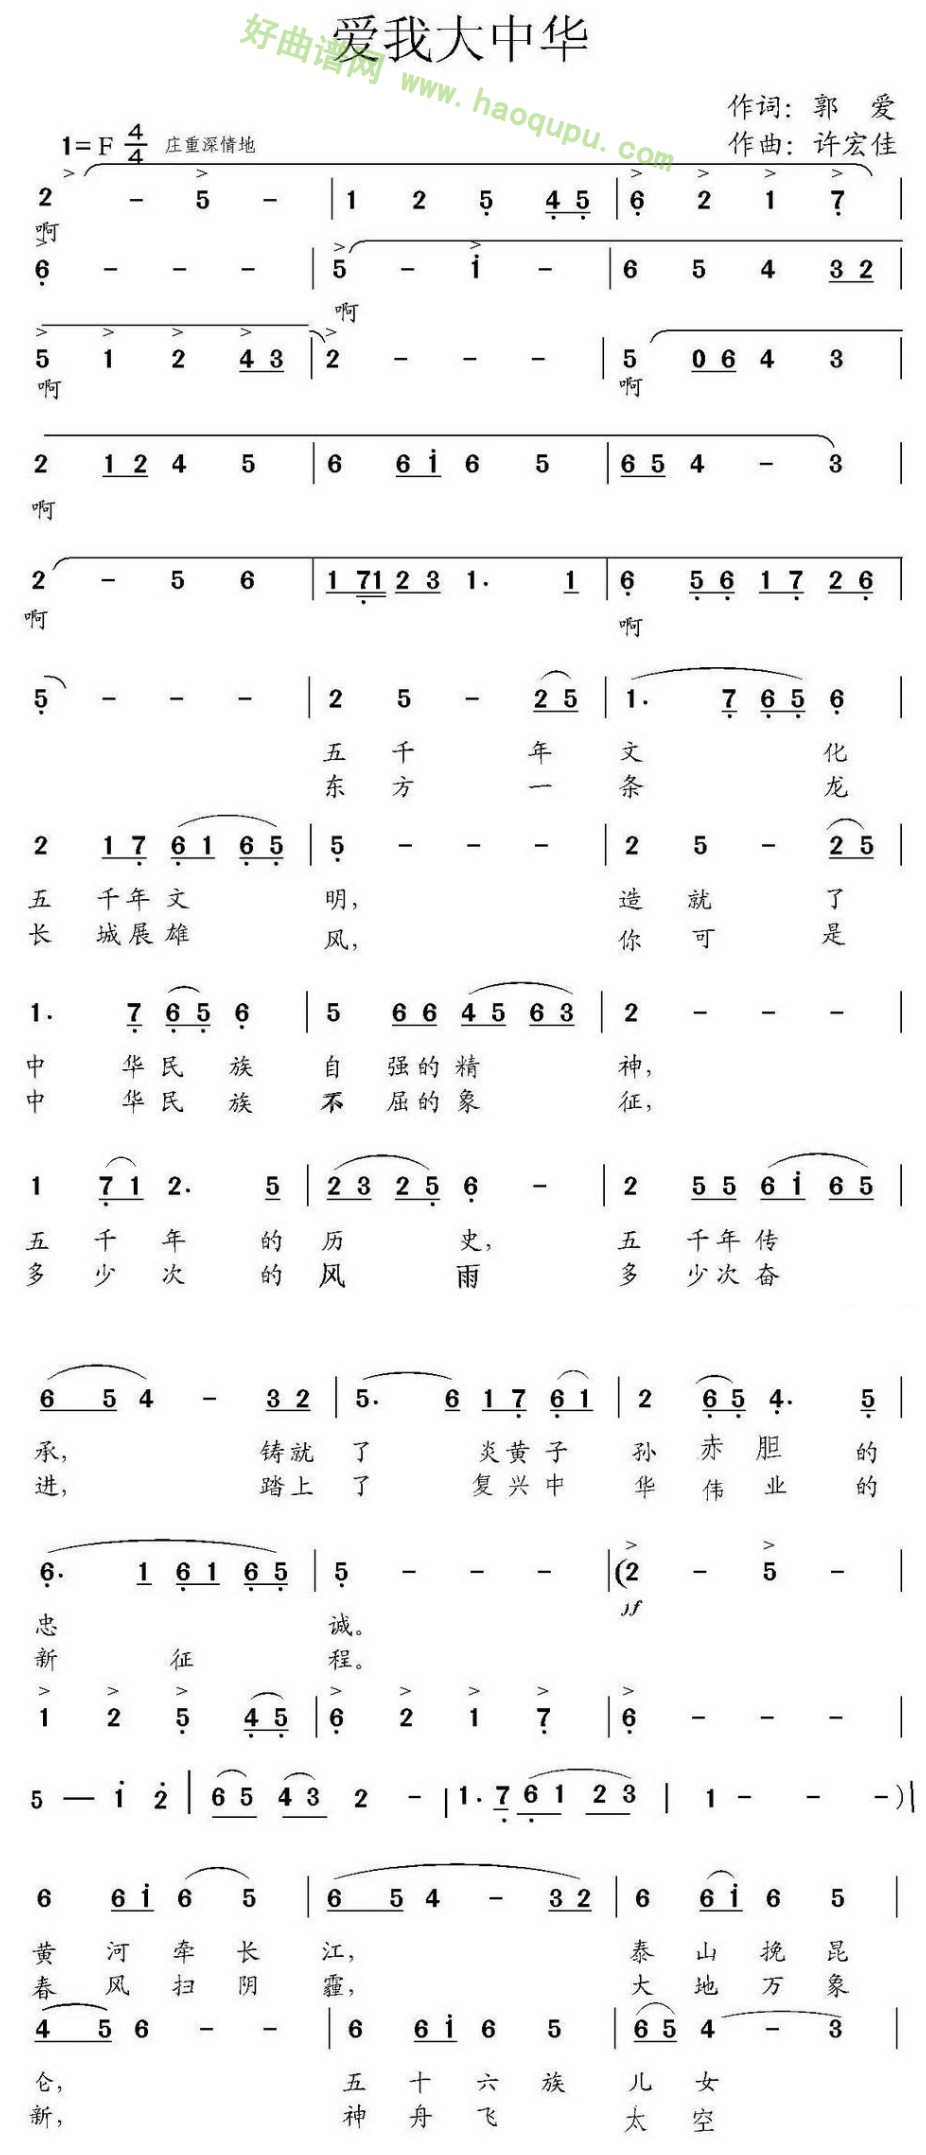 爱我大中华
好曲谱网 www.haoqupu.com
作词：郭 爱
1=F 4/4 庄重深情地 作曲：许宏佳
2 - 5 - | 1 2 5 4 5 | 6 2 1 7 |
啊
6 - - - | 5 - i - | 6 5 4 3 2 |
啊
5 1 2 4 3 | 2 - - - | 5 0 6 4 3 |
啊 啊
2 1 2 4 5 | 6 6 i 6 5 | 6 5 4 - 3 |
啊
2 - 5 6 | 1 7 1 2 3 1. 1 | 6 5 6 1 7 2 6 |
啊 啊
5 - - - | 2 5 - 2 5 | 1. 7 6 5 6 |
五 千 年 文 化
东 方 一 条 龙
2 1 7 6 1 6 5 | 5 - - - | 2 5 - 2 5 |
五 千年文 明， 造 就 了
长 城展雄 风， 你 可 是
1. 7 6 5 6 | 5 6 6 4 5 6 3 | 2 - - - |
中 华民 族 自 强的精 神，
中 华民 族 不 屈的象 征，
1 7 1 2. 5 | 2 3 2 5 6 - | 2 5 5 6 i 6 5 |
五 千 年 的 历 史， 五 千年传
多 少 次 的 风 雨 多 少次奋
6 5 4 - 3 2 | 5. 6 1 7 6 1 | 2 6 5 4. 5 |
承， 铸就 了 炎黄子 孙 赤 胆 的
进， 踏上 了 复兴中 华 伟 业 的
6. 1 6 1 6 5 | 5 - - - | (2 - 5 - |
sf
忠 诚。
新 征 程。
1 2 5 4 5 | 6 2 1 7 | 6 - - - |
5 — i 2 | 6 5 4 3 2 - | 1. 7 6 1 2 3 | 1 - - -) |
6 6 i 6 5 | 6 5 4 - 3 2 | 6 6 i 6 5 |
黄 河 牵 长 江， 泰 山 挽 昆
春 风 扫 阴 霾， 大 地 万 象
4 5 6 - - | 6 6 i 6 5 | 6 5 4 - 3 |
仑， 五 十 六 族 儿 女
新， 神 舟 飞 太 空